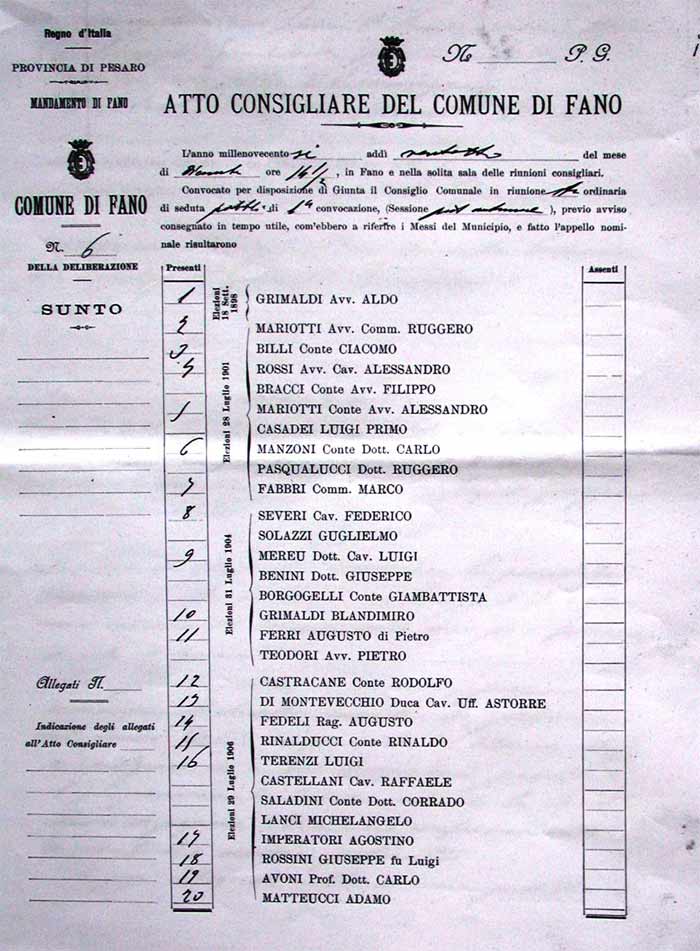 Regno d'Italia
PROVINCIA DI PESARO
MANDAMENTO DI FANO
COMUNE DI FANO
N. 6
DELLA DELIBERAZIONE
SUNTO
Allegati N.
Indicazione degli allegati
all'Atto Consigliare
N P. G.
ATTO CONSIGLIARE DEL COMUNE DI FANO
L'anno millenovecento sei addì ventotto del mese
di ore 16 1/2, in Fano e nella solita sala delle riunioni consigliari.
Convocato per disposizione di Giunta il Consiglio Comunale in riunione ordinaria
di seduta di 1ª convocazione, (Sessione ), previo avviso
consegnato in tempo utile, com'ebbero a riferire i Messi del Municipio, e fatto l'appello nomi-
nale risultarono
Presenti
Assenti
Elezioni 18 Sett. 1898
1 GRIMALDI Avv. ALDO
Elezioni 28 Luglio 1901
2 MARIOTTI Avv. Comm. RUGGERO
3 BILLI Conte CIACOMO
4 ROSSI Avv. Cav. ALESSANDRO
BRACCI Conte Avv. FILIPPO
5 MARIOTTI Conte Avv. ALESSANDRO
CASADEI LUIGI PRIMO
6 MANZONI Conte Dott. CARLO
PASQUALUCCI Dott. RUGGERO
7 FABBRI Comm. MARCO
Elezioni 31 Luglio 1904
8 SEVERI Cav. FEDERICO
SOLAZZI GUGLIELMO
9 MEREU Dott. Cav. LUIGI
BENINI Dott. GIUSEPPE
BORGOGELLI Conte GIAMBATTISTA
10 GRIMALDI BLANDIMIRO
11 FERRI AUGUSTO di Pietro
TEODORI Avv. PIETRO
Elezioni 29 Luglio 1906
12 CASTRACANE Conte RODOLFO
13 DI MONTEVECCHIO Duca Cav. Uff. ASTORRE
14 FEDELI Rag. AUGUSTO
15 RINALDUCCI Conte RINALDO
16 TERENZI LUIGI
CASTELLANI Cav. RAFFAELE
SALADINI Conte Dott. CORRADO
LANCI MICHELANGELO
17 IMPERATORI AGOSTINO
18 ROSSINI GIUSEPPE fu Luigi
19 AVONI Prof. Dott. CARLO
20 MATTEUCCI ADAMO